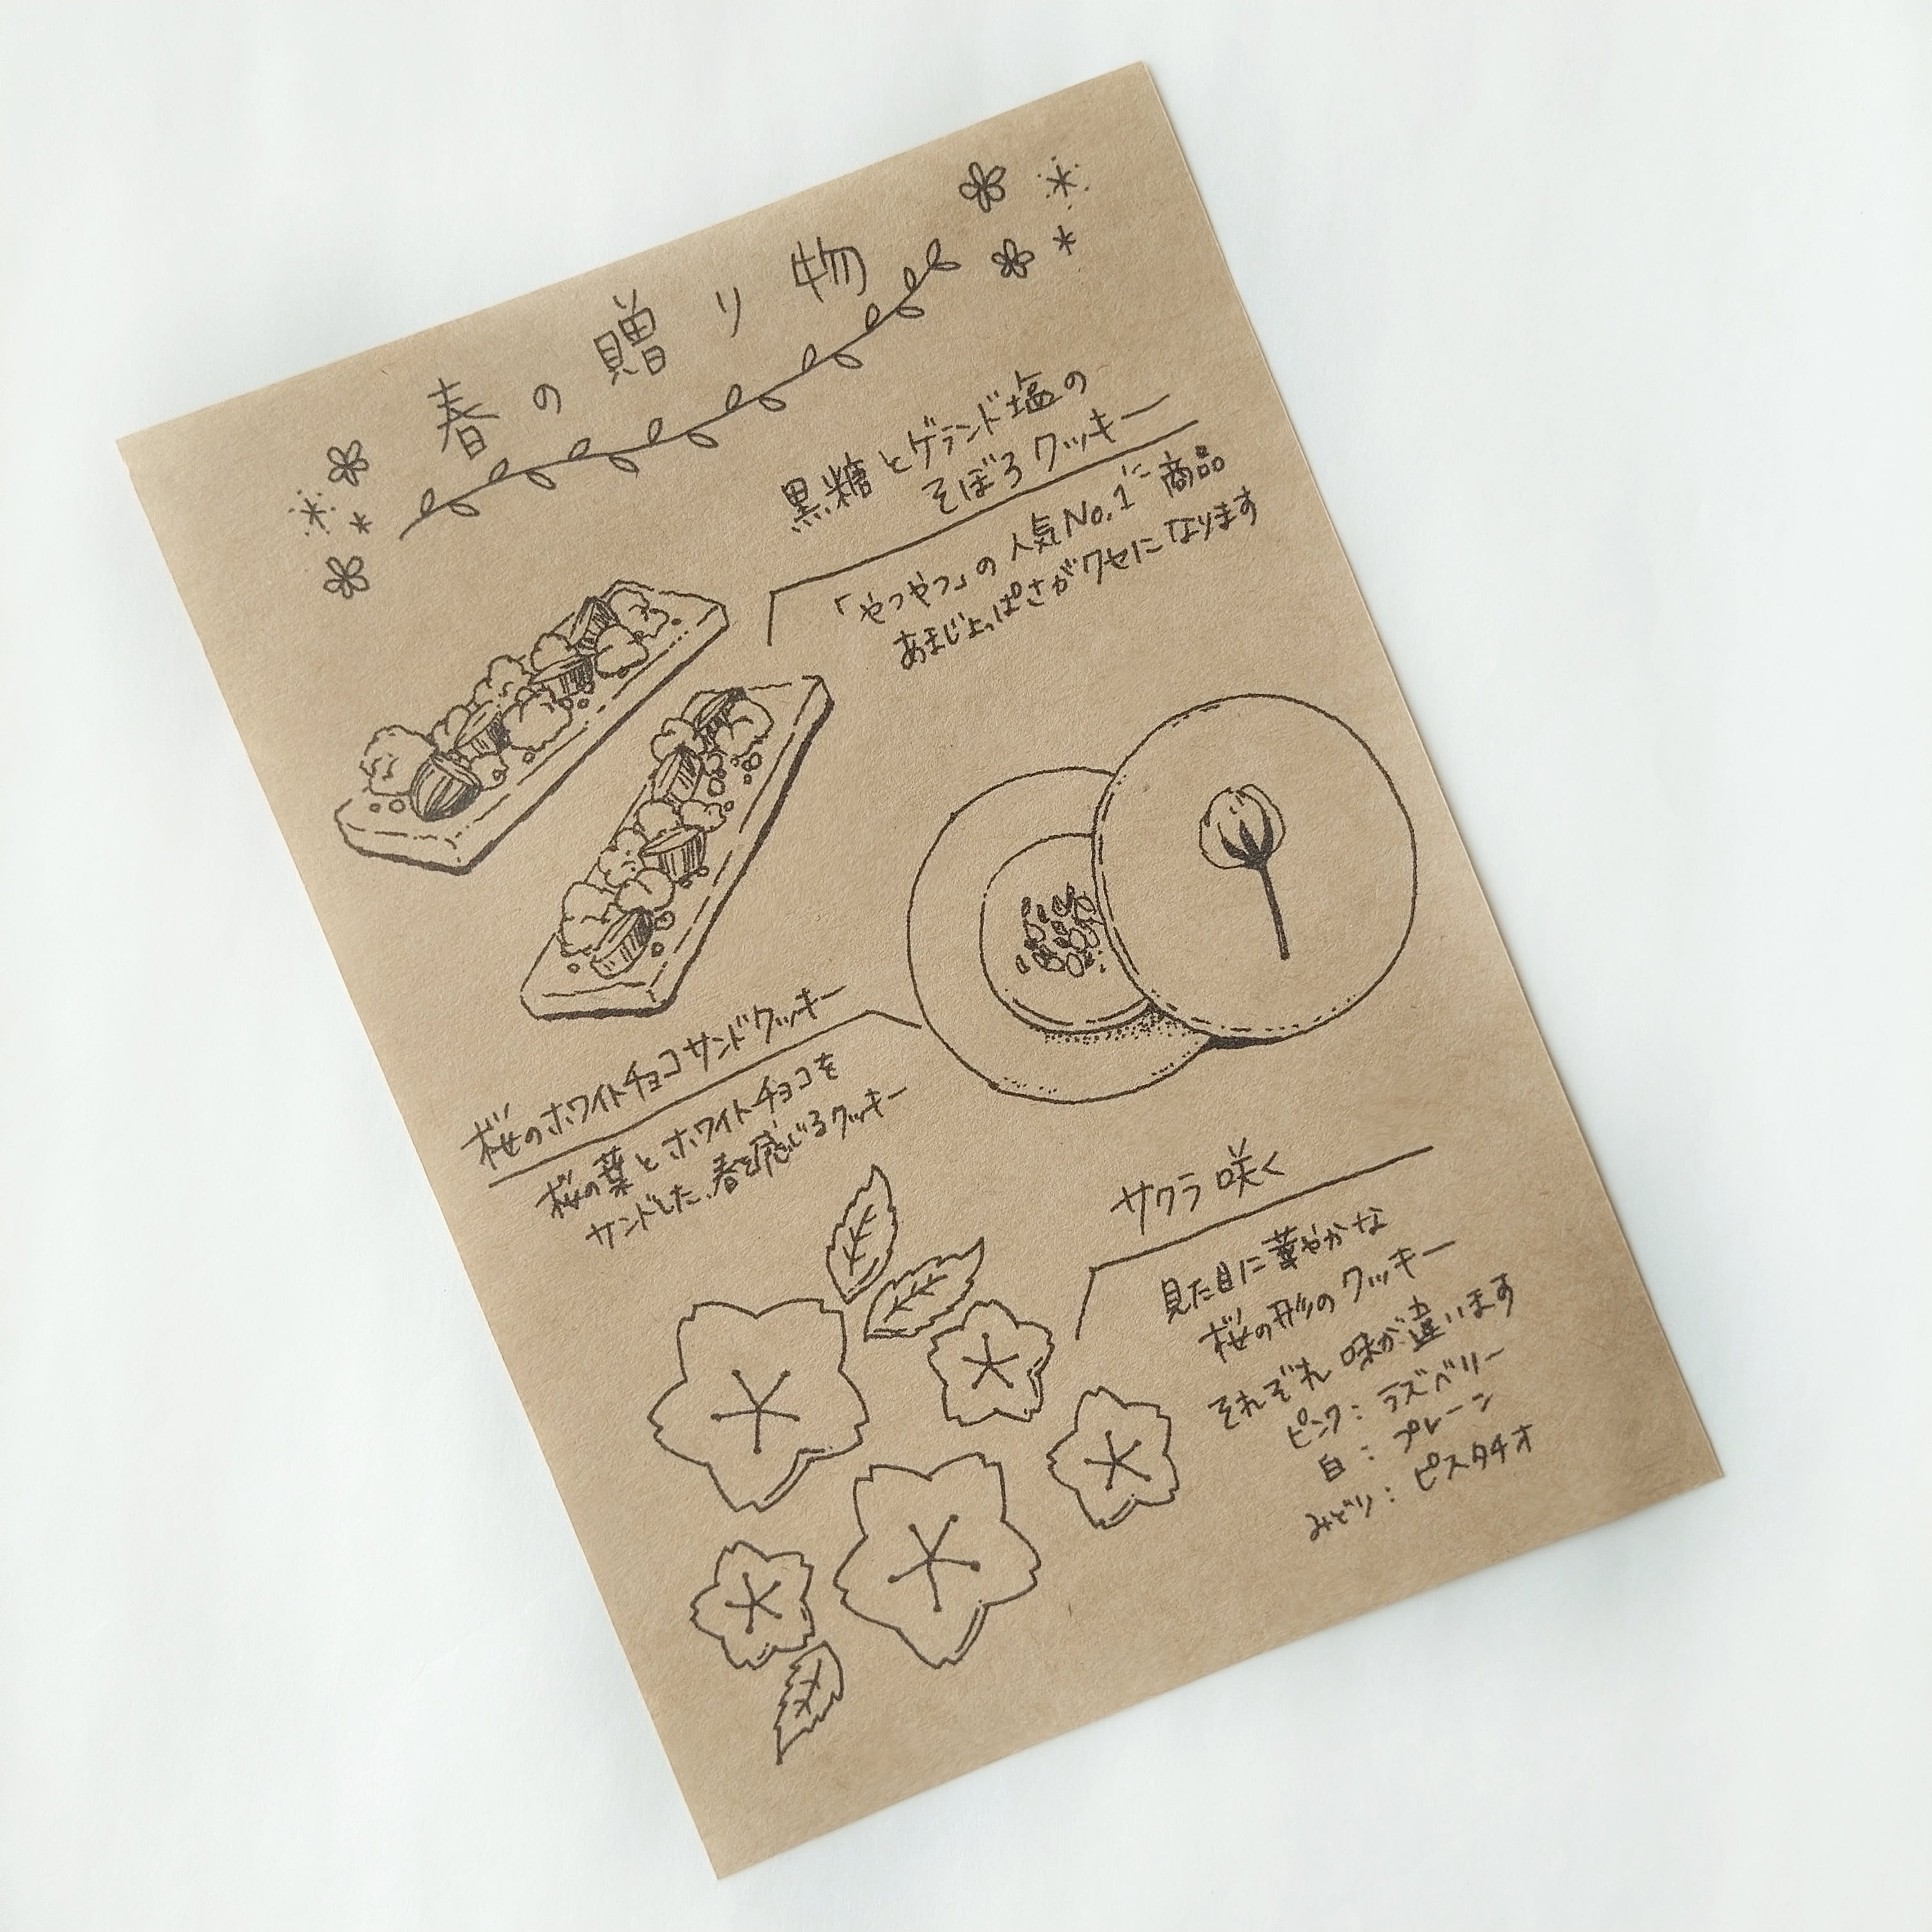 春の贈り物
黒糖とゲランド塩の
そぼろクッキー
「やつやつ」の人気No.1商品
あまじょっぱさがクセになります
桜のホワイトチョコサンドクッキー
桜の葉とホワイトチョコを
サンドした、春を感じるクッキー
サクラ咲く
見た目に華やかな
桜の形のクッキー
それぞれ味が違います
ピンク：ラズベリー
白：プレーン
みどり：ピスタチオ